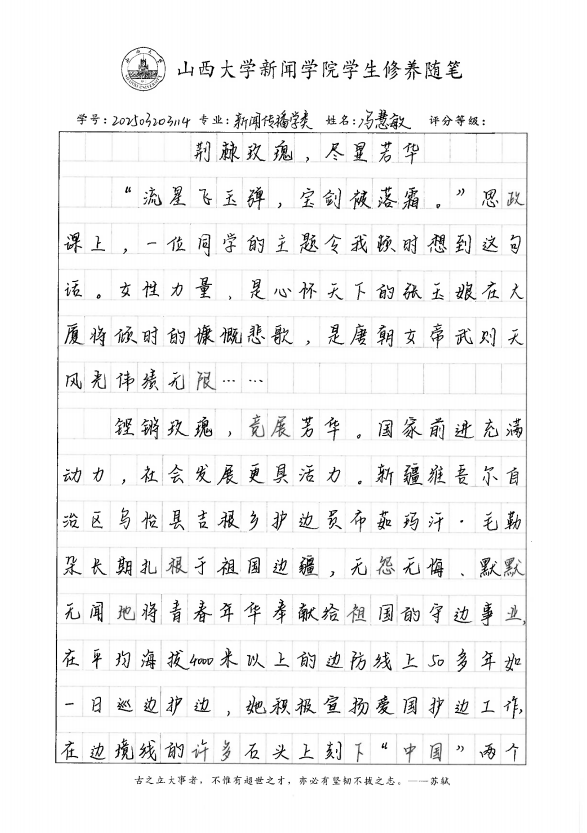 山西大学新闻学院学生修养随笔
学号：202503203114 专业：新闻传播学类 姓名：冯慧敏 评分等级：
荆棘玫瑰，尽显芳华
“流星飞玉弹，宝剑被落霜。”思政
课上，一位同学的主题令我顿时想到这句
话。女性力量，是心怀天下的张玉娘在大
厦将倾时的慷慨悲歌，是唐朝女帝武则天
风光伟绩无限……
铿锵玫瑰，竞展芳华。国家前进充满
动力，社会发展更具活力。新疆维吾尔自
治区乌恰县吉根乡护边员布茹玛汗·毛勒
朵长期扎根于祖国边疆，无怨无悔、默默
无闻地将青春年华奉献给祖国的守边事业，
在平均海拔4000米以上的边防线上50多年如
一日巡边护边，她积极宣扬爱国护边工作，
在边境线的许多石头上刻下“中国”两个
古之立大事者，不惟有超世之才，亦必有坚韧不拔之志。——苏轼